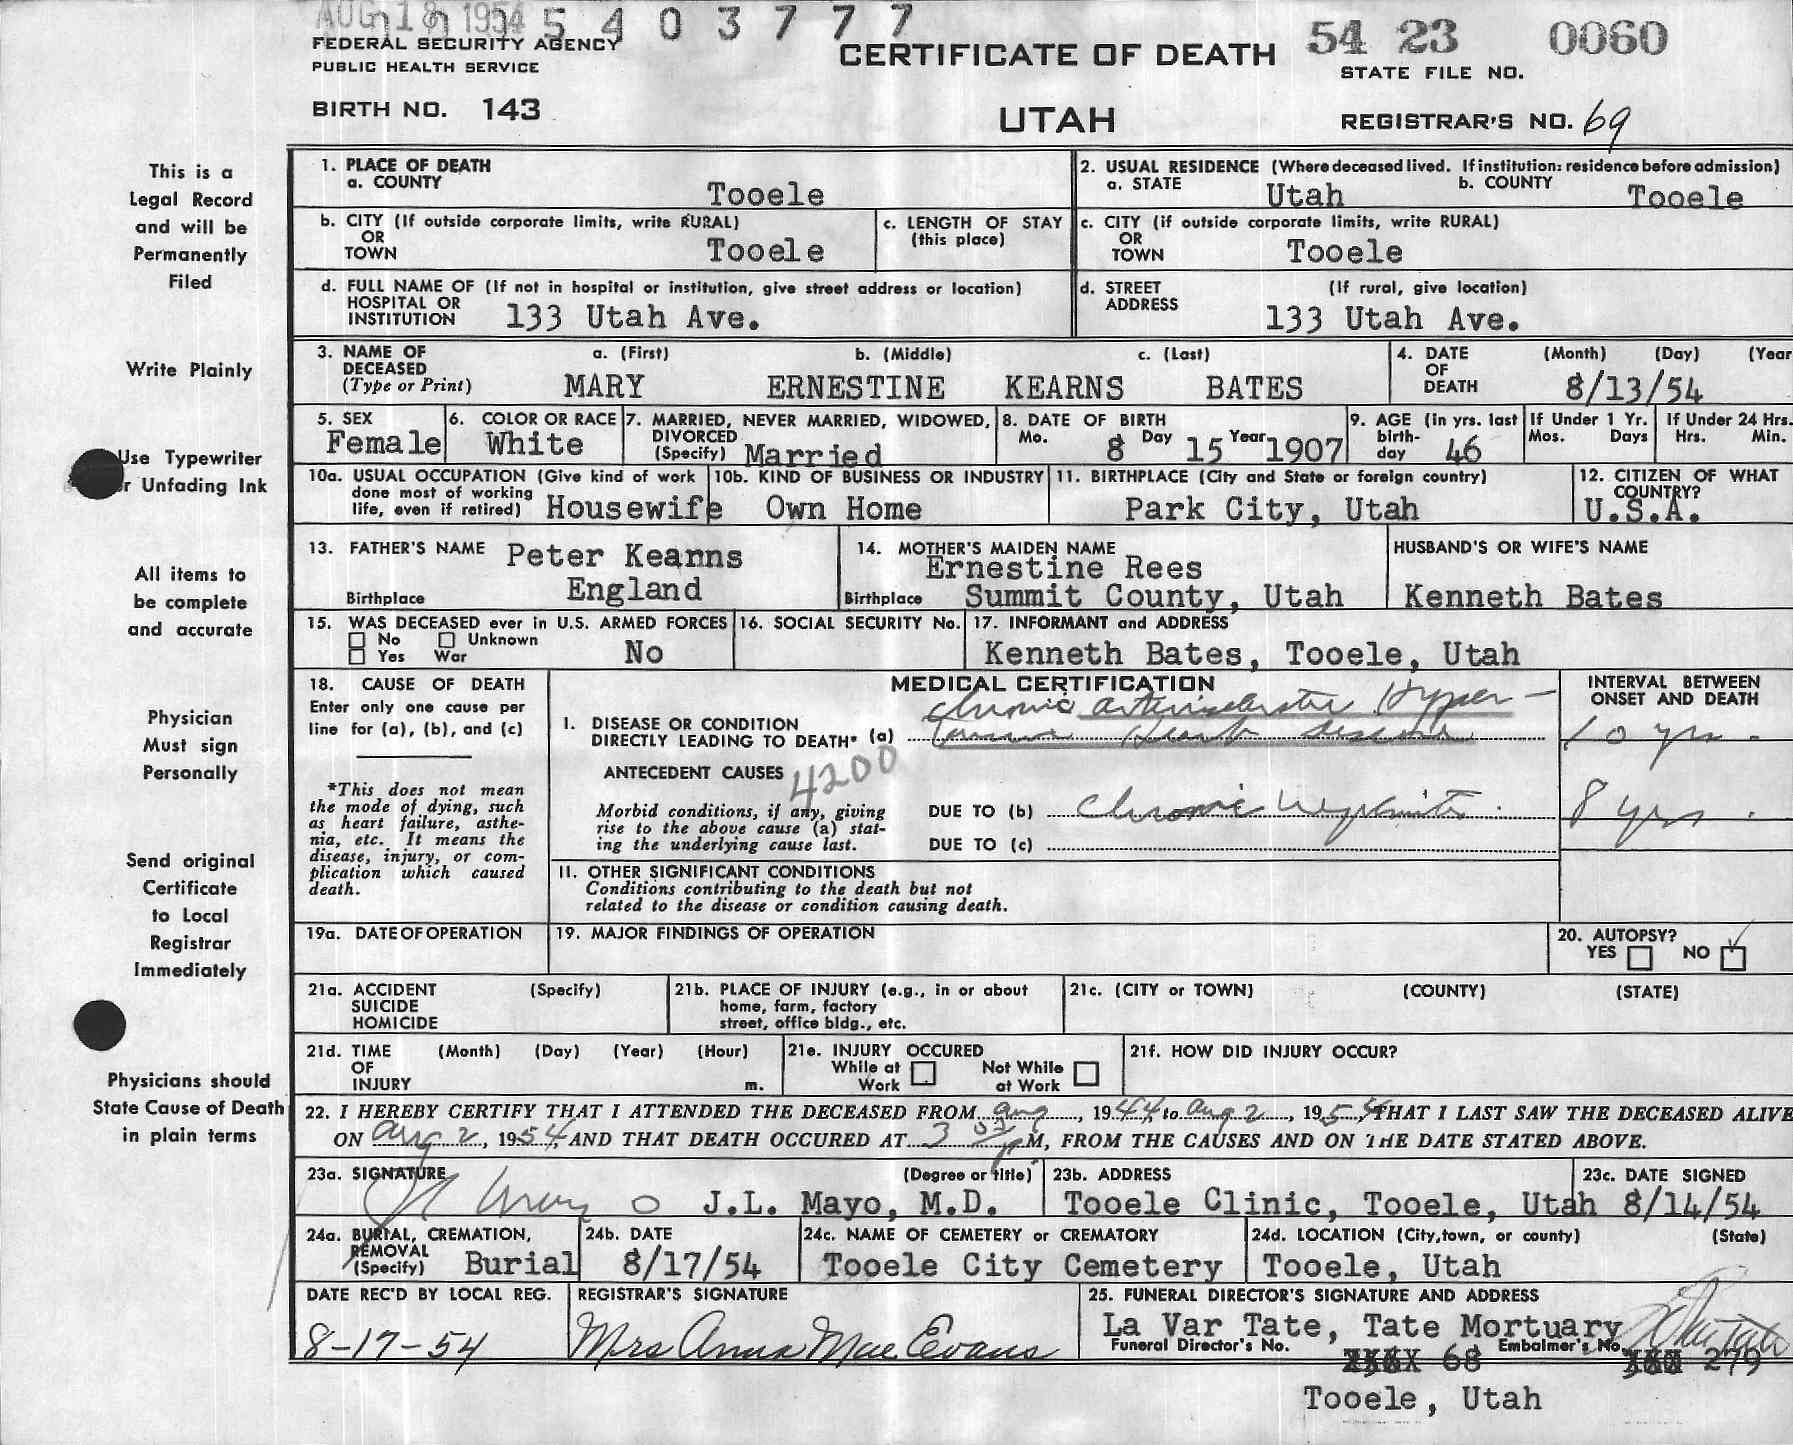 AUG 18 1954 5 4 0 3 7 7 7
54 23 0060
FEDERAL SECURITY AGENCY
PUBLIC HEALTH SERVICE
CERTIFICATE OF DEATH
STATE FILE NO.
BIRTH NO. 143
UTAH
REGISTRAR'S NO. 69
This is a
Legal Record
and will be
Permanently
Filed
Write Plainly
Use Typewriter
r Unfading Ink
All items to
be complete
and accurate
Physician
Must sign
Personally
Send original
Certificate
to Local
Registrar
Immediately
Physicians should
State Cause of Death
in plain terms
1. PLACE OF DEATH
a. COUNTY Tooele
2. USUAL RESIDENCE (Where deceased lived. If institution: residence before admission)
a. STATE Utah b. COUNTY Tooele
b. CITY (If outside corporate limits, write RURAL)
OR
TOWN Tooele
c. LENGTH OF STAY
(this place)
c. CITY (if outside corporate limits, write RURAL)
OR
TOWN Tooele
d. FULL NAME OF (If not in hospital or institution, give street address or location)
HOSPITAL OR
INSTITUTION 133 Utah Ave.
d. STREET (If rural, give location)
ADDRESS 133 Utah Ave.
3. NAME OF a. (First) b. (Middle) c. (Last)
DECEASED
(Type or Print) MARY ERNESTINE KEARNS BATES
4. DATE (Month) (Day) (Year
OF
DEATH 8/13/54
5. SEX
Female
6. COLOR OR RACE
White
7. MARRIED, NEVER MARRIED, WIDOWED,
DIVORCED
(Specify) Married
8. DATE OF BIRTH
Mo. 8 Day 15 Year 1907
9. AGE (in yrs. last
birth-
day 46
If Under 1 Yr.
Mos. Days
If Under 24 Hrs.
Hrs. Min.
10a. USUAL OCCUPATION (Give kind of work
done most of working
life, even if retired) Housewife
10b. KIND OF BUSINESS OR INDUSTRY
Own Home
11. BIRTHPLACE (City and State or foreign country)
Park City, Utah
12. CITIZEN OF WHAT
COUNTRY?
U.S.A.
13. FATHER'S NAME Peter Kearns
Birthplace England
14. MOTHER'S MAIDEN NAME
Ernestine Rees
Birthplace Summit County, Utah
HUSBAND'S OR WIFE'S NAME
Kenneth Bates
15. WAS DECEASED ever in U.S. ARMED FORCES
No Unknown
Yes War No
16. SOCIAL SECURITY No.
17. INFORMANT and ADDRESS
Kenneth Bates, Tooele, Utah
18. CAUSE OF DEATH
Enter only one cause per
line for (a), (b), and (c)
*This does not mean
the mode of dying, such
as heart failure, asthe-
nia, etc. It means the
disease, injury, or com-
plication which caused
death.
MEDICAL CERTIFICATION
I. DISEASE OR CONDITION Chronic arteriosclerotic Hyper-
DIRECTLY LEADING TO DEATH* (a) tensive Heart disease
ANTECEDENT CAUSES 4200
Morbid conditions, if any, giving
rise to the above cause (a) stat-
ing the underlying cause last.
DUE TO (b) Chronic Nephritis.
DUE TO (c)
INTERVAL BETWEEN
ONSET AND DEATH
10 yrs.
8 yrs.
II. OTHER SIGNIFICANT CONDITIONS
Conditions contributing to the death but not
related to the disease or condition causing death.
19a. DATE OF OPERATION
19. MAJOR FINDINGS OF OPERATION
20. AUTOPSY?
YES NO
21a. ACCIDENT (Specify)
SUICIDE
HOMICIDE
21b. PLACE OF INJURY (e.g., in or about
home, farm, factory
street, office bldg., etc.
21c. (CITY or TOWN) (COUNTY) (STATE)
21d. TIME (Month) (Day) (Year) (Hour)
OF
INJURY m.
21e. INJURY OCCURED
While at Not While
Work at Work
21f. HOW DID INJURY OCCUR?
22. I HEREBY CERTIFY THAT I ATTENDED THE DECEASED FROM Aug, 1944 to Aug 2, 1954 THAT I LAST SAW THE DECEASED ALIVE
ON Aug 2, 1954 AND THAT DEATH OCCURED AT 3 PM, FROM THE CAUSES AND ON THE DATE STATED ABOVE.
23a. SIGNATURE (Degree or title)
J.L. Mayo, M.D.
23b. ADDRESS
Tooele Clinic, Tooele, Utah
23c. DATE SIGNED
8/14/54
24a. BURIAL, CREMATION,
REMOVAL
(Specify) Burial
24b. DATE
8/17/54
24c. NAME OF CEMETERY or CREMATORY
Tooele City Cemetery
24d. LOCATION (City, town, or county) (State)
Tooele, Utah
DATE REC'D BY LOCAL REG.
8-17-54
REGISTRAR'S SIGNATURE
Mrs Anna Mae Evans
25. FUNERAL DIRECTOR'S SIGNATURE AND ADDRESS
La Var Tate, Tate Mortuary
Funeral Director's No. 68 Embalmer's No. 279
Tooele, Utah